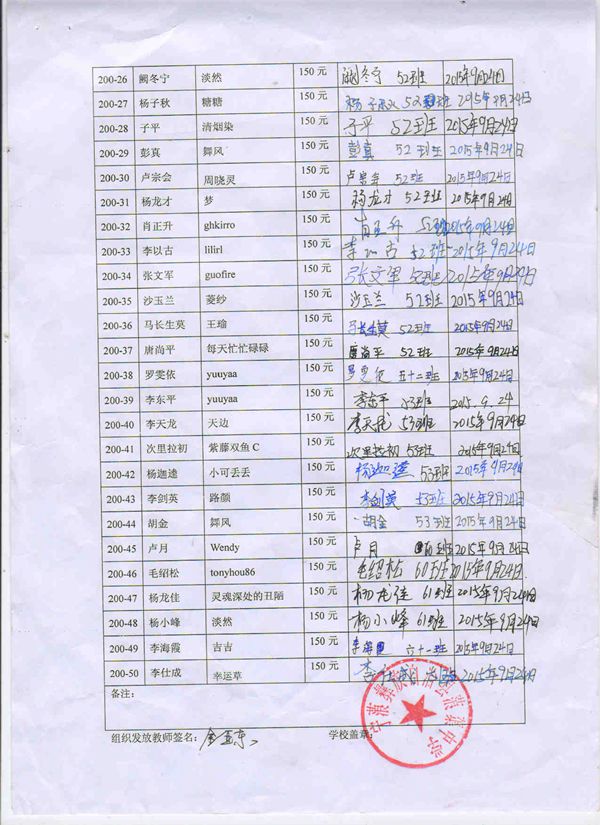 200-26 阙冬宁 淡然 150 元 阙冬宁 52班 2015年9月24日
200-27 杨子秋 糖糖 150 元 杨子秋 52班 2015年9月24日
200-28 子平 清烟染 150 元 子平 52班 2015年9月24日
200-29 彭真 舞风 150 元 彭真 52班 2015年9月24日
200-30 卢宗会 周晓灵 150 元 卢宗会 52班 2015年9月24日
200-31 杨龙才 梦 150 元 杨龙才 52班 2015年9月24日
200-32 肖正升 ghkirro 150 元 肖正升 52班 2015年9月24日
200-33 李以古 lilirl 150 元 李以古 52班 2015年9月24日
200-34 张文军 guofire 150 元 张文军 52班 2015年9月24日
200-35 沙玉兰 菱纱 150 元 沙玉兰 52班 2015年9月24日
200-36 马长生莫 王瑜 150 元 马长生莫 52班 2015年9月24日
200-37 唐尚平 每天忙忙碌碌 150 元 唐尚平 52班 2015年9月24日
200-38 罗雯依 yuuyaa 150 元 罗雯依 五十二班 2015年9月24日
200-39 李东平 yuuyaa 150 元 李东平 53班 2015.9.24
200-40 李天龙 天边 150 元 李天龙 53班 2015年9月24日
200-41 次里拉初 紫藤双鱼 C 150 元 次里拉初 53班 2015年9月24日
200-42 杨迦逵 小可丢丢 150 元 53班 2015年9月24日
200-43 李剑英 路颜 150 元 李剑英 53班 2015年9月24日
200-44 胡金 舞风 150 元 胡金 53班 2015年9月24日
200-45 卢月 Wendy 150 元 卢月 班 2015年9月24日
200-46 毛绍松 tonyhou86 150 元 毛绍松 60班 2015年9月24日
200-47 杨龙佳 灵魂深处的丑陋 150 元 杨龙佳 61班 2015年9月24日
200-48 杨小峰 淡然 150 元 杨小峰 61班 2015年9月24日
200-49 李海霞 吉吉 150 元 李海霞 六十一班 2015年9月24日
200-50 李仕成 幸运草 150 元 李仕成 2015年9月24日
备注：
组织发放教师签名： 学校盖章：
宁蒗彝族自治县蒗蕖中学